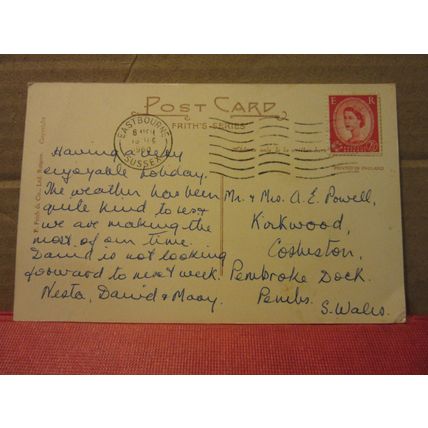 POST CARD
FRITH'S SERIES
E R
EASTBOURNE
SUSSEX
PRINTED IN ENGLAND
F. Frith & Co., Ltd. Reigate. Copyright
Having a very
enjoyable holiday.
The weather has been
quite kind to us &
we are making the
most of our time.
David is not looking
forward to next week.
Nesta, David & Mary.
Mr. & Mrs. A. E. Powell,
Kirkwood,
Cosheston,
Pembroke Dock.
Pembs.
S. Wales.